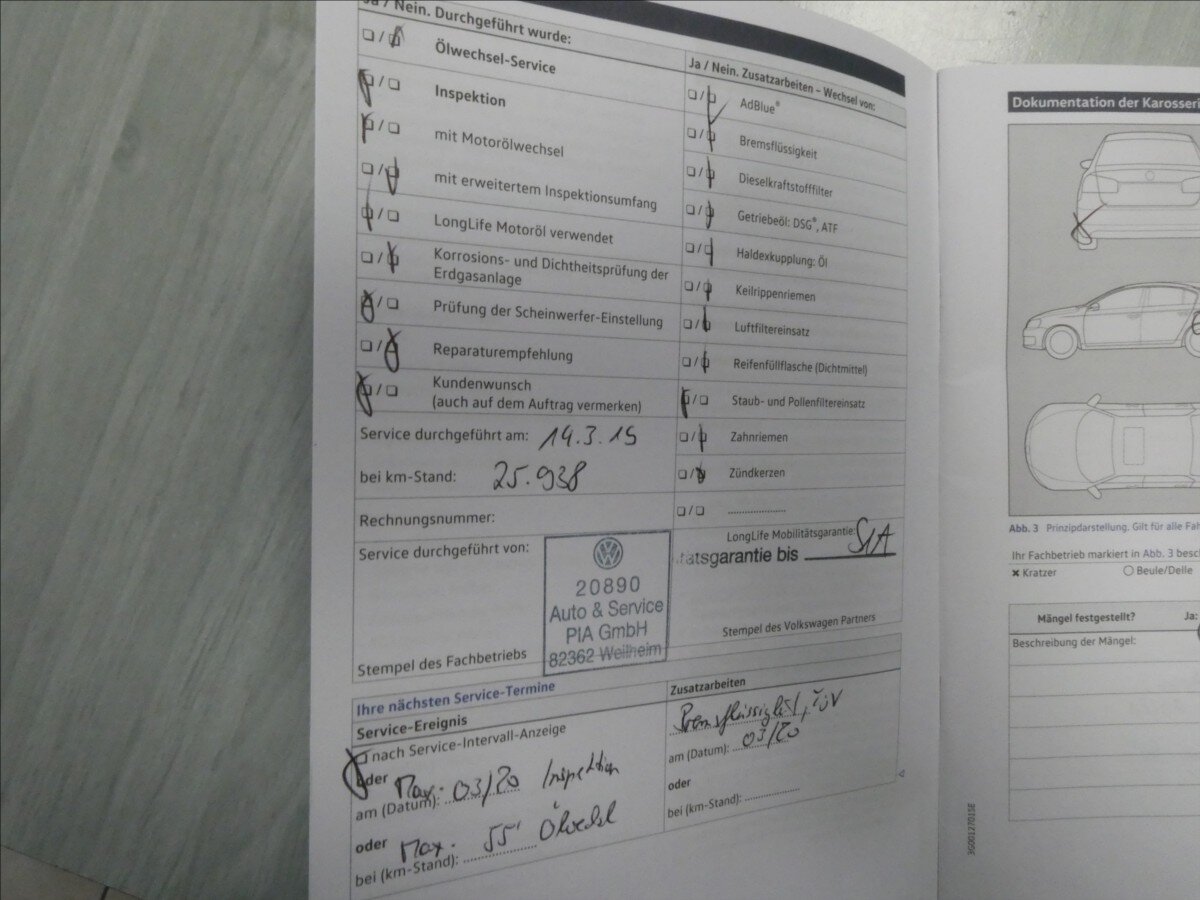 Ja / Nein. Durchgeführt wurde:
Ölwechsel-Service
Inspektion
mit Motorölwechsel
mit erweitertem Inspektionsumfang
LongLife Motoröl verwendet
Korrosions- und Dichtheitsprüfung der
Erdgasanlage
Prüfung der Scheinwerfer-Einstellung
Reparaturempfehlung
Kundenwunsch
(auch auf dem Auftrag vermerken)
Service durchgeführt am: 14.3.19
bei km-Stand: 25.938
Rechnungsnummer:
Service durchgeführt von:
20890
Auto & Service
PIA GmbH
82362 Weilheim
Stempel des Fachbetriebs
Ja / Nein. Zusatzarbeiten – Wechsel von:
AdBlue®
Bremsflüssigkeit
Dieselkraftstofffilter
Getriebeöl: DSG®, ATF
Haldexkupplung: Öl
Keilrippenriemen
Luftfiltereinsatz
Reifenfüllflasche (Dichtmittel)
Staub- und Pollenfiltereinsatz
Zahnriemen
Zündkerzen
LongLife Mobilitätsgarantie:
tätsgarantie bis SIA
Stempel des Volkswagen Partners
Ihre nächsten Service-Termine
Service-Ereignis
nach Service-Intervall-Anzeige
oder
am (Datum): Max. 03/20 Inspektion
oder
bei (km-Stand): Max. 55' Ölwechsl
Zusatzarbeiten
Bremsflüssigkeit, TÜV
am (Datum): 03/20
oder
bei (km-Stand):
Dokumentation der Karosseri
Abb. 3 Prinzipdarstellung. Gilt für alle Fah
Ihr Fachbetrieb markiert in Abb. 3 besch
Kratzer Beule/Delle
Mängel festgestellt? Ja:
Beschreibung der Mängel:
3G0012701SE